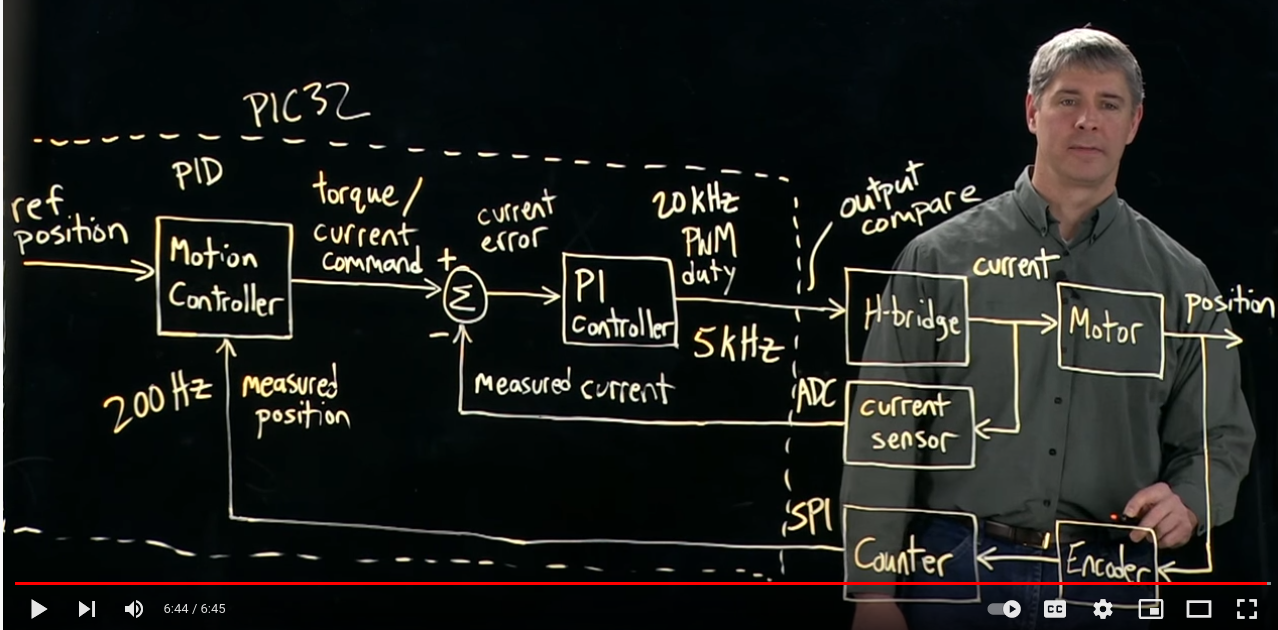 PIC32
PID
ref
position
Motion
Controller
torque/
current
command
+
Σ
-
current
error
PI
controller
20kHz
PWM
duty
5kHz
output
compare
H-bridge
current
Motor
position
200Hz
measured
position
measured current
ADC
current
sensor
SPI
Counter
Encoder
6:44 / 6:45
CC